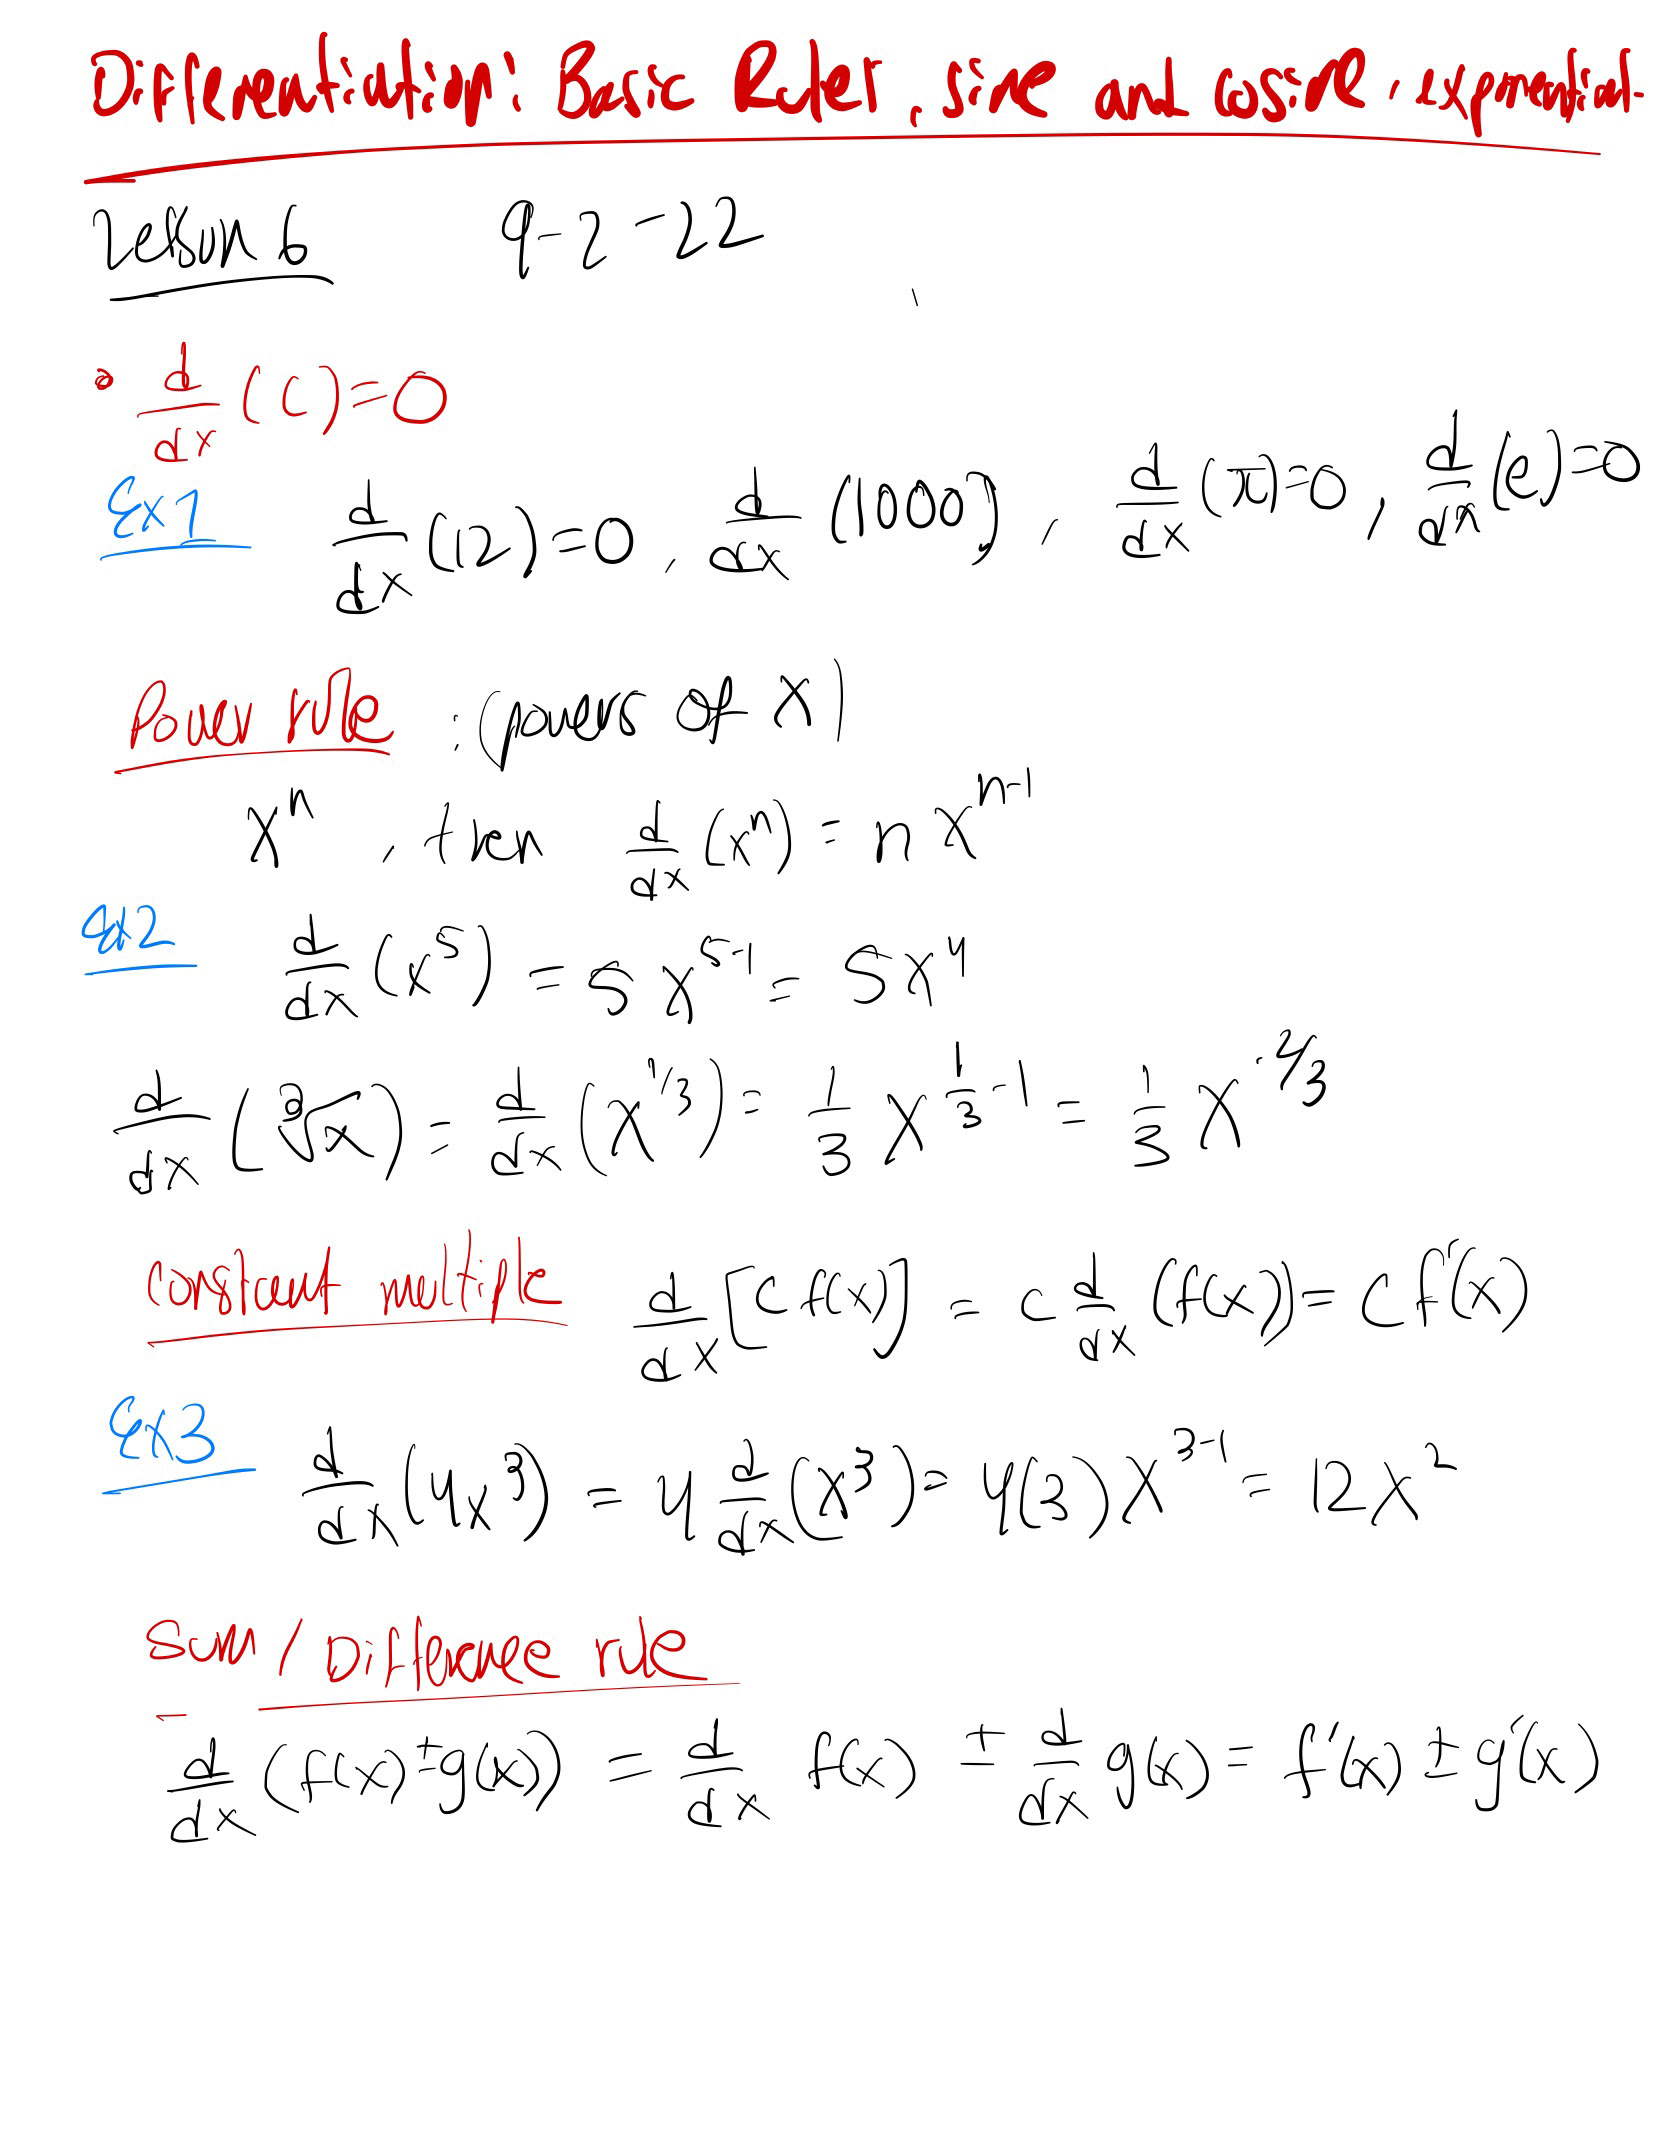 Differentiation: Basic Rules, sine and cosine, exponential.
Lesson 6 9-2-22
d/dx (c)=0
Ex1 d/dx (12)=0, d/dx (1000), d/dx (π)=0, d/dx (e)=0
Power rule : (powers of x)
xⁿ, then d/dx (xⁿ) = n xⁿ⁻¹
Ex2 d/dx (x⁵) = 5 x⁵⁻¹ = 5x⁴
d/dx (∛x) = d/dx (x^1/3) = 1/3 x^(1/3 -1) = 1/3 x^-2/3
constant multiple d/dx [c f(x)] = c d/dx (f(x)) = c f'(x)
Ex3 d/dx (4x³) = 4 d/dx (x³) = 4(3)x³⁻¹ = 12x²
Sum / Difference rule
d/dx (f(x) ± g(x)) = d/dx f(x) ± d/dx g(x) = f'(x) ± g'(x)